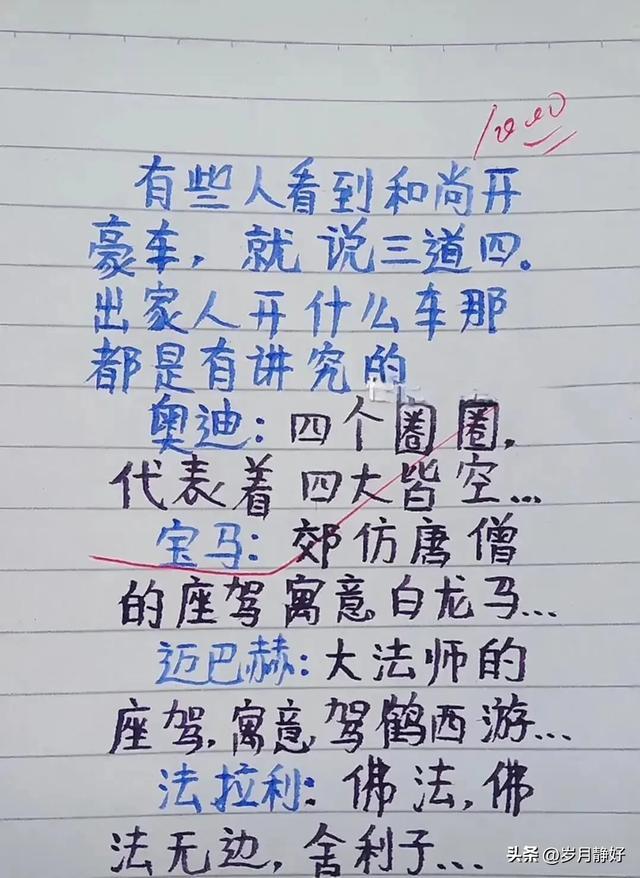 有些人看到和尚开
豪车，就说三道四。
出家人开什么车那
都是有讲究的
奥迪：四个圈圈，
代表着四大皆空...
宝马：郊仿唐僧
的座驾寓意白龙马...
迈巴赫：大法师的
座驾，寓意驾鹤西游...
法拉利：佛法，佛
法无边，舍利子...
头条 @岁月静好